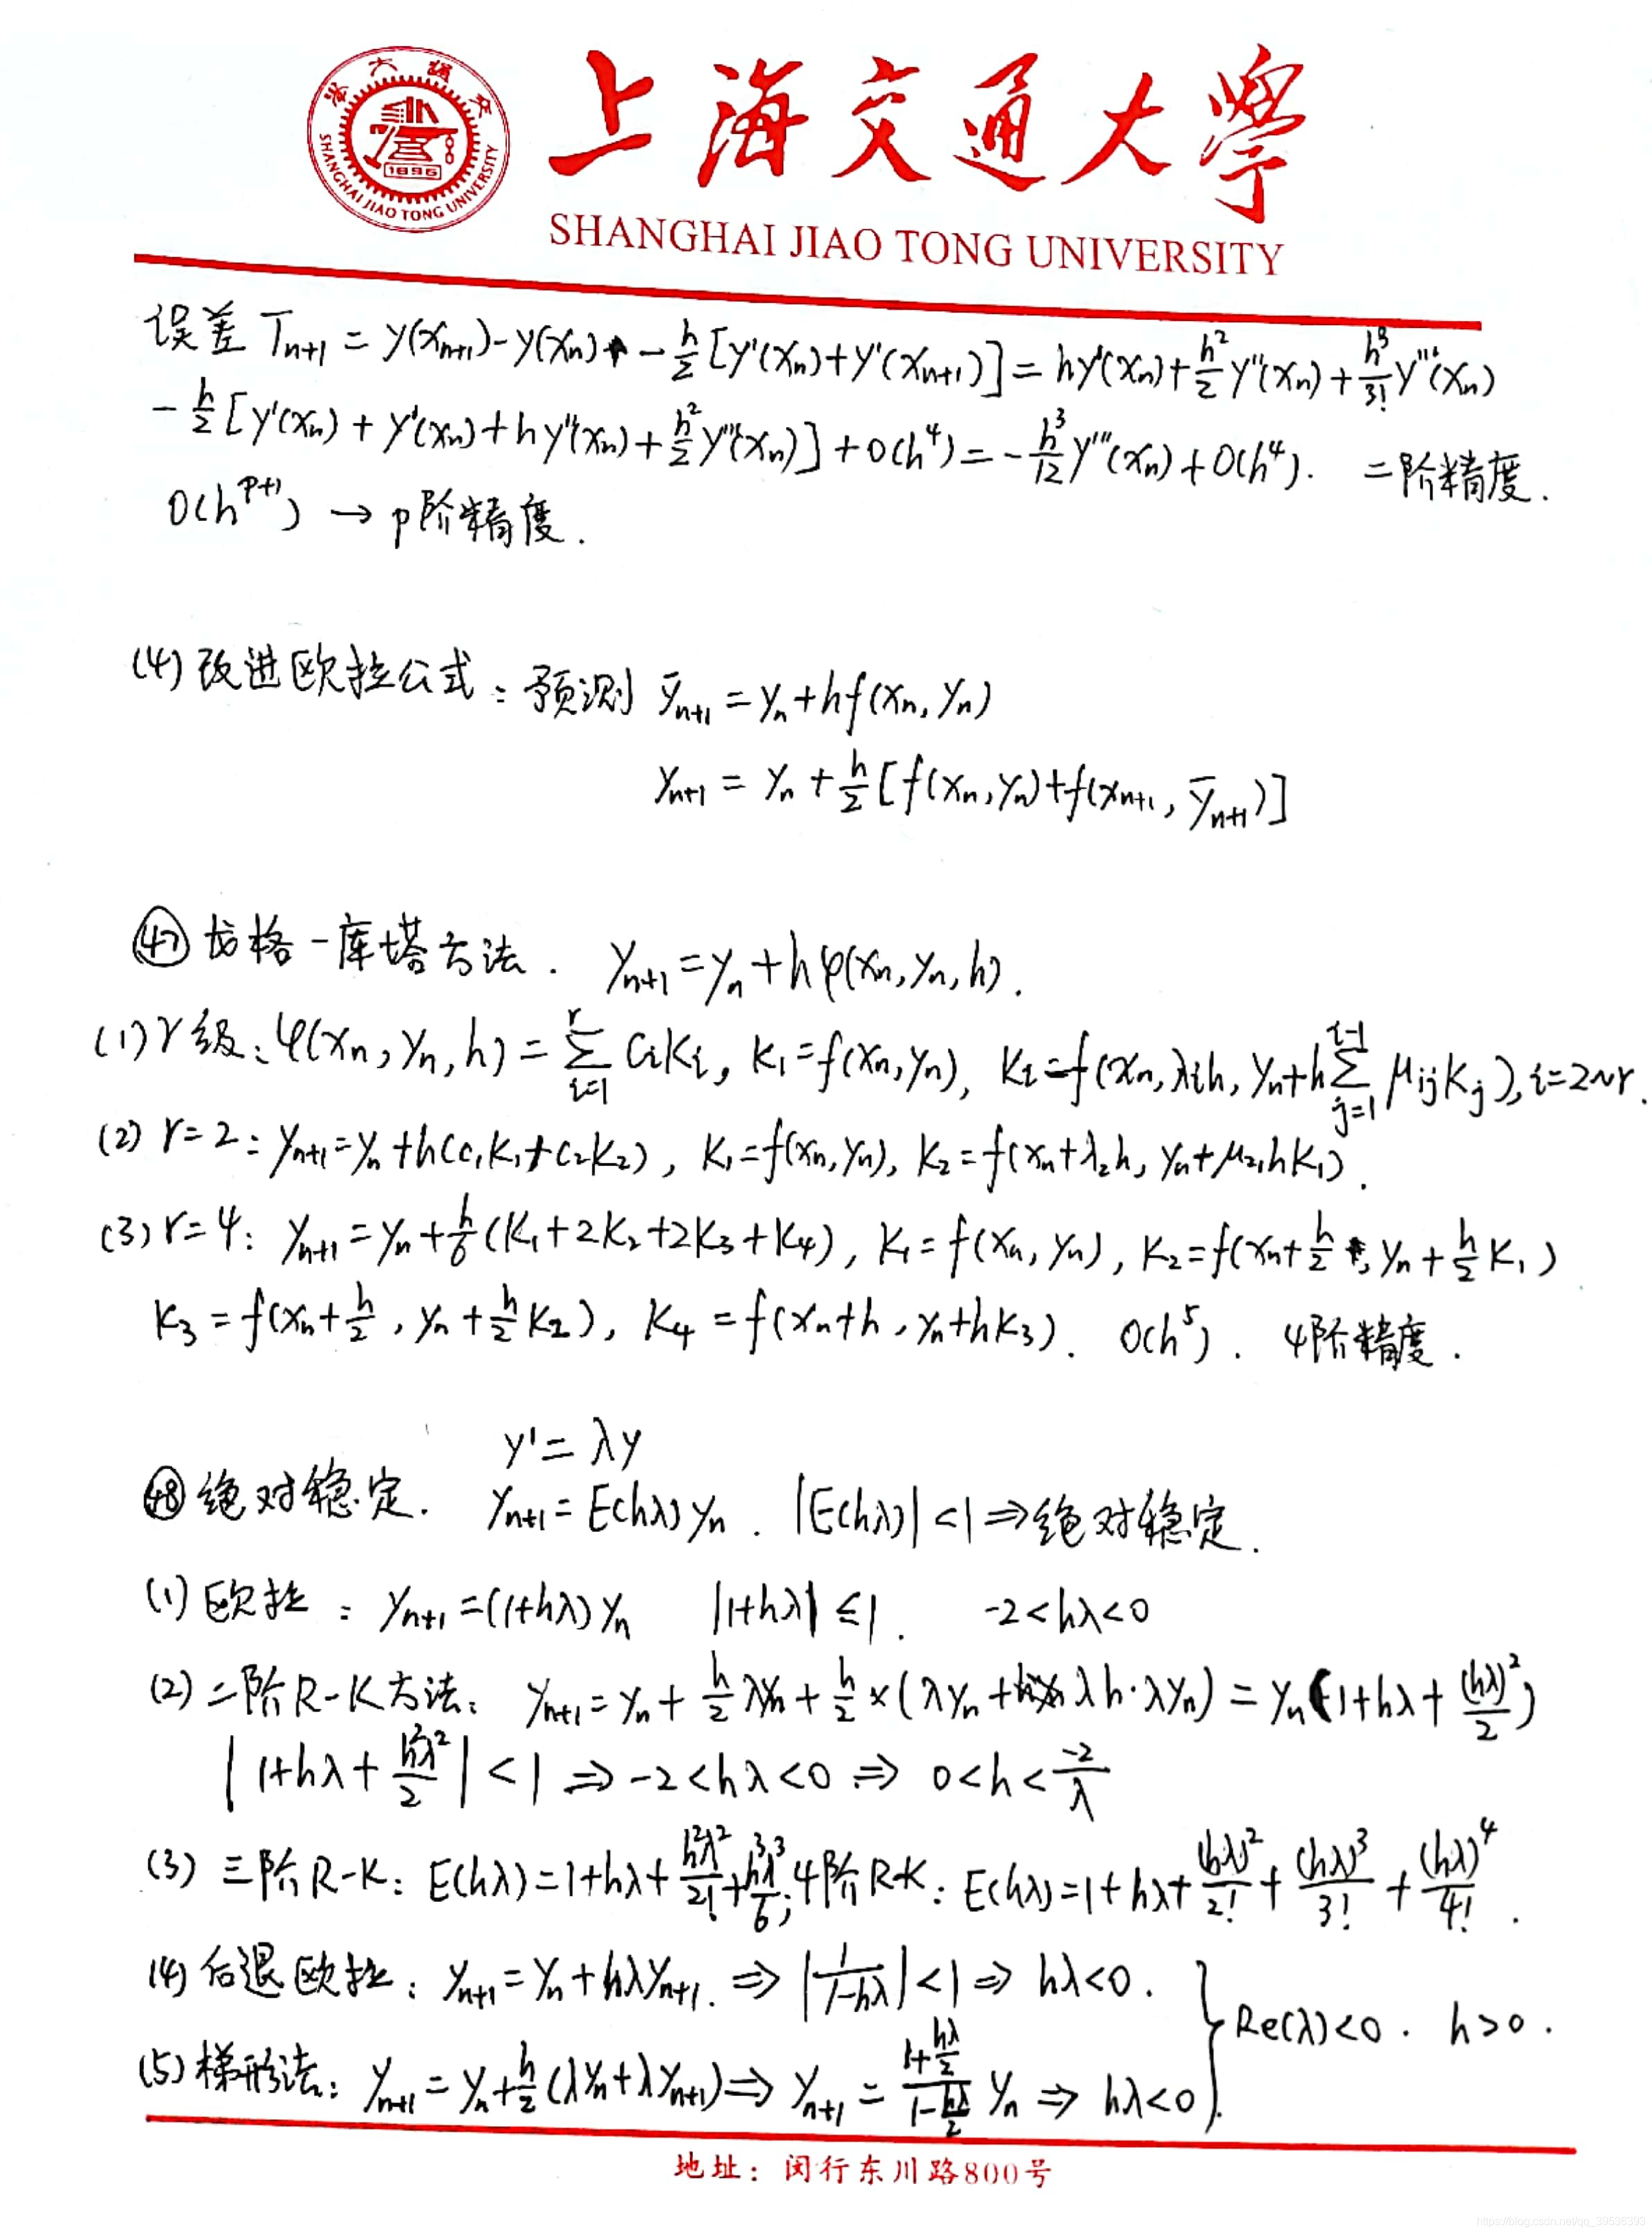 上海交通大學
SHANGHAI JIAO TONG UNIVERSITY
1896
SHANGHAI JIAO TONG UNIVERSITY
误差 Tₙ₊₁ = y(xₙ₊₁) - y(xₙ) - h/2 [y'(xₙ) + y'(xₙ₊₁)] = hy'(xₙ) + h²/2 y''(xₙ) + h³/3! y'''(xₙ)
- h/2 [y'(xₙ) + y'(xₙ) + hy''(xₙ) + h²/2 y'''(xₙ)] + O(h⁴) = - h³/12 y'''(xₙ) + O(h⁴). 二阶精度.
O(hᵖ⁺¹) → p阶精度.
(4) 改进欧拉公式: 预测 ȳₙ₊₁ = yₙ + hf(xₙ, yₙ)
yₙ₊₁ = yₙ + h/2 [f(xₙ, yₙ) + f(xₙ₊₁, ȳₙ₊₁)]
㊼ 龙格-库塔方法. yₙ₊₁ = yₙ + hφ(xₙ, yₙ, h).
(1) r级: φ(xₙ, yₙ, h) = ∑_{i=1}^{r} CᵢKᵢ, K₁ = f(xₙ, yₙ), Kᵢ = f(xₙ, λᵢh, yₙ + h∑_{j=1}^{i-1} μᵢⱼKⱼ), i=2~r.
(2) r=2: yₙ₊₁ = yₙ + h(c₁K₁ + c₂K₂), K₁ = f(xₙ, yₙ), K₂ = f(xₙ + λ₂h, yₙ + μ₂₁hK₁).
(3) r=4: yₙ₊₁ = yₙ + h/6 (K₁ + 2K₂ + 2K₃ + K₄), K₁ = f(xₙ, yₙ), K₂ = f(xₙ + h/2, yₙ + h/2 K₁)
K₃ = f(xₙ + h/2, yₙ + h/2 K₂), K₄ = f(xₙ + h, yₙ + hK₃). O(h⁵). 4阶精度.
y' = λy
㊽ 绝对稳定. yₙ₊₁ = E(hλ)yₙ. |E(hλ)| < 1 ⇒ 绝对稳定.
(1) 欧拉: yₙ₊₁ = (1+hλ)yₙ |1+hλ| ≤ 1. -2 < hλ < 0
(2) 二阶R-K方法: yₙ₊₁ = yₙ + h/2 λyₙ + h/2 × (λyₙ + λh·λyₙ) = yₙ(1 + hλ + (hλ)²/2)
|1 + hλ + h²λ²/2| < 1 ⇒ -2 < hλ < 0 ⇒ 0 < h < -2/λ
(3) 三阶R-K: E(hλ) = 1 + hλ + h²λ²/2! + h³λ³/6; 4阶R-K: E(hλ) = 1 + hλ + (hλ)²/2! + (hλ)³/3! + (hλ)⁴/4!.
(4) 后退欧拉: yₙ₊₁ = yₙ + hλyₙ₊₁. ⇒ |1/(1-hλ)| < 1 ⇒ hλ < 0.
} Re(λ) < 0. h > 0.
(5) 梯形法: yₙ₊₁ = yₙ + h/2 (λyₙ + λyₙ₊₁) ⇒ yₙ₊₁ = (1 + hλ/2)/(1 - hλ/2) yₙ ⇒ hλ < 0
地址: 闵行东川路800号
https://blog.csdn.net/qq_39536393